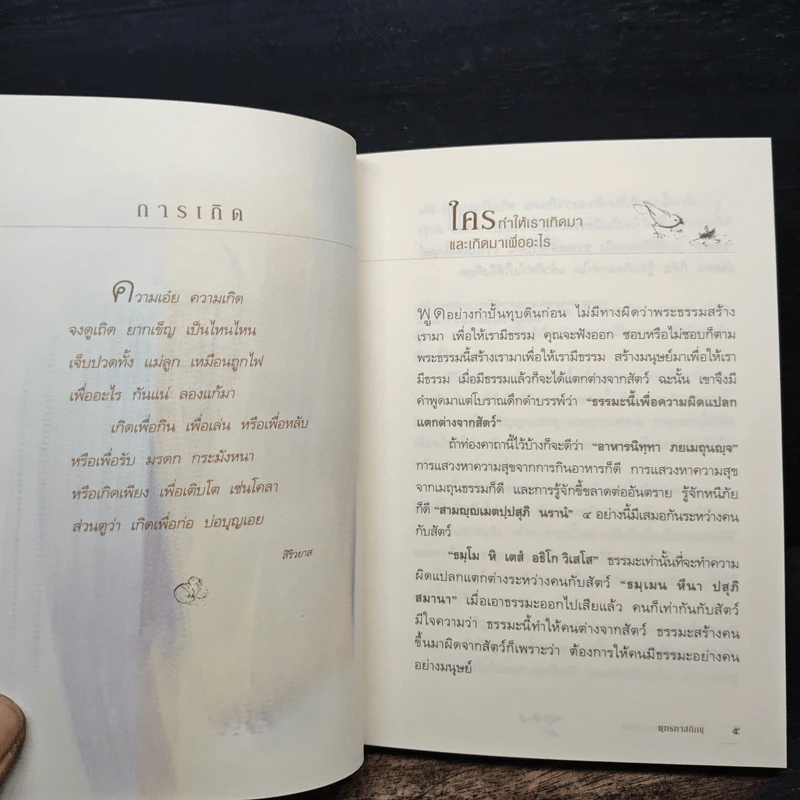 การเกิด
ความเอ๋ย ความเกิด
จงดูเถิด ยากเข็ญ เป็นไหนไหน
เจ็บปวดทั้ง แม่ลูก เหมือนถูกไฟ
เพื่ออะไร กันแน่ ลองแก้มา
เกิดเพื่อกิน เพื่อเล่น หรือเพื่อหลับ
หรือเพื่อรับ มรดก กระมังหนา
หรือเกิดเพียง เพื่อเติบโต เช่นโคลา
ส่วนตูว่า เกิดเพื่อก่อ บ่อบุญเอย
สิริวยาส
ใครทำให้เราเกิดมา
และเกิดมาเพื่ออะไร
พูดอย่างกำปั้นทุบดินก่อน ไม่มีทางผิดว่าพระธรรมสร้าง
เรามา เพื่อให้เรามีธรรม คุณจะฟังออก ชอบหรือไม่ชอบก็ตาม
พระธรรมนี้สร้างเรามาเพื่อให้เรามีธรรม สร้างมนุษย์มาเพื่อให้เรา
มีธรรม เมื่อมีธรรมแล้วก็จะได้แตกต่างจากสัตว์ ฉะนั้น เขาจึงมี
คำพูดมาแต่โบราณดึกดำบรรพ์ว่า “ธรรมะนี้เพื่อความผิดแปลก
แตกต่างจากสัตว์”
ถ้าท่องคาถานี้ไว้บ้างก็จะดีว่า “อาหารนิทฺทา ภยเมถุนญฺจ”
การแสวงหาความสุขจากการกินอาหารก็ดี การแสวงหาความสุข
จากเมถุนธรรมก็ดี และการรู้จักขี้ขลาดต่ออันตราย รู้จักหนีภัย
ก็ดี “สามญฺญเมตปฺปสุภิ นรานํ” ๔ อย่างนี้มีเสมอกันระหว่างคน
กับสัตว์
“ธมฺโม หิ เตสํ อธิโก วิเสโส” ธรรมะเท่านั้นที่จะทำความ
ผิดแปลกแตกต่างระหว่างคนกับสัตว์ “ธมฺเมน หีนา ปสุภิ
สมานา” เมื่อเอาธรรมะออกไปเสียแล้ว คนก็เท่ากันกับสัตว์
มีใจความว่า ธรรมะนี้ทำให้คนต่างจากสัตว์ ธรรมะสร้างคน
ขึ้นมาผิดจากสัตว์ก็เพราะว่า ต้องการให้คนมีธรรมะอย่างคน
อย่างมนุษย์
พุทธทาสภิกขุ ๕